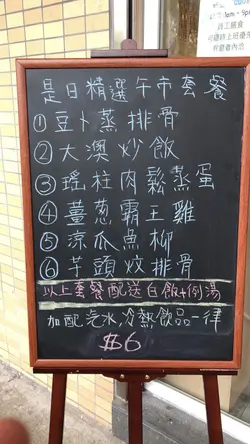 是日精選午市套餐
①豆卜蒸排骨
②大澳炒飯
③瑤柱肉鬆蒸蛋
④薑葱霸王雞
⑤涼瓜魚柳
⑥芋頭炆排骨
以上套餐配送白飯+例湯
加配汽水,冷熱飲品一律
$6